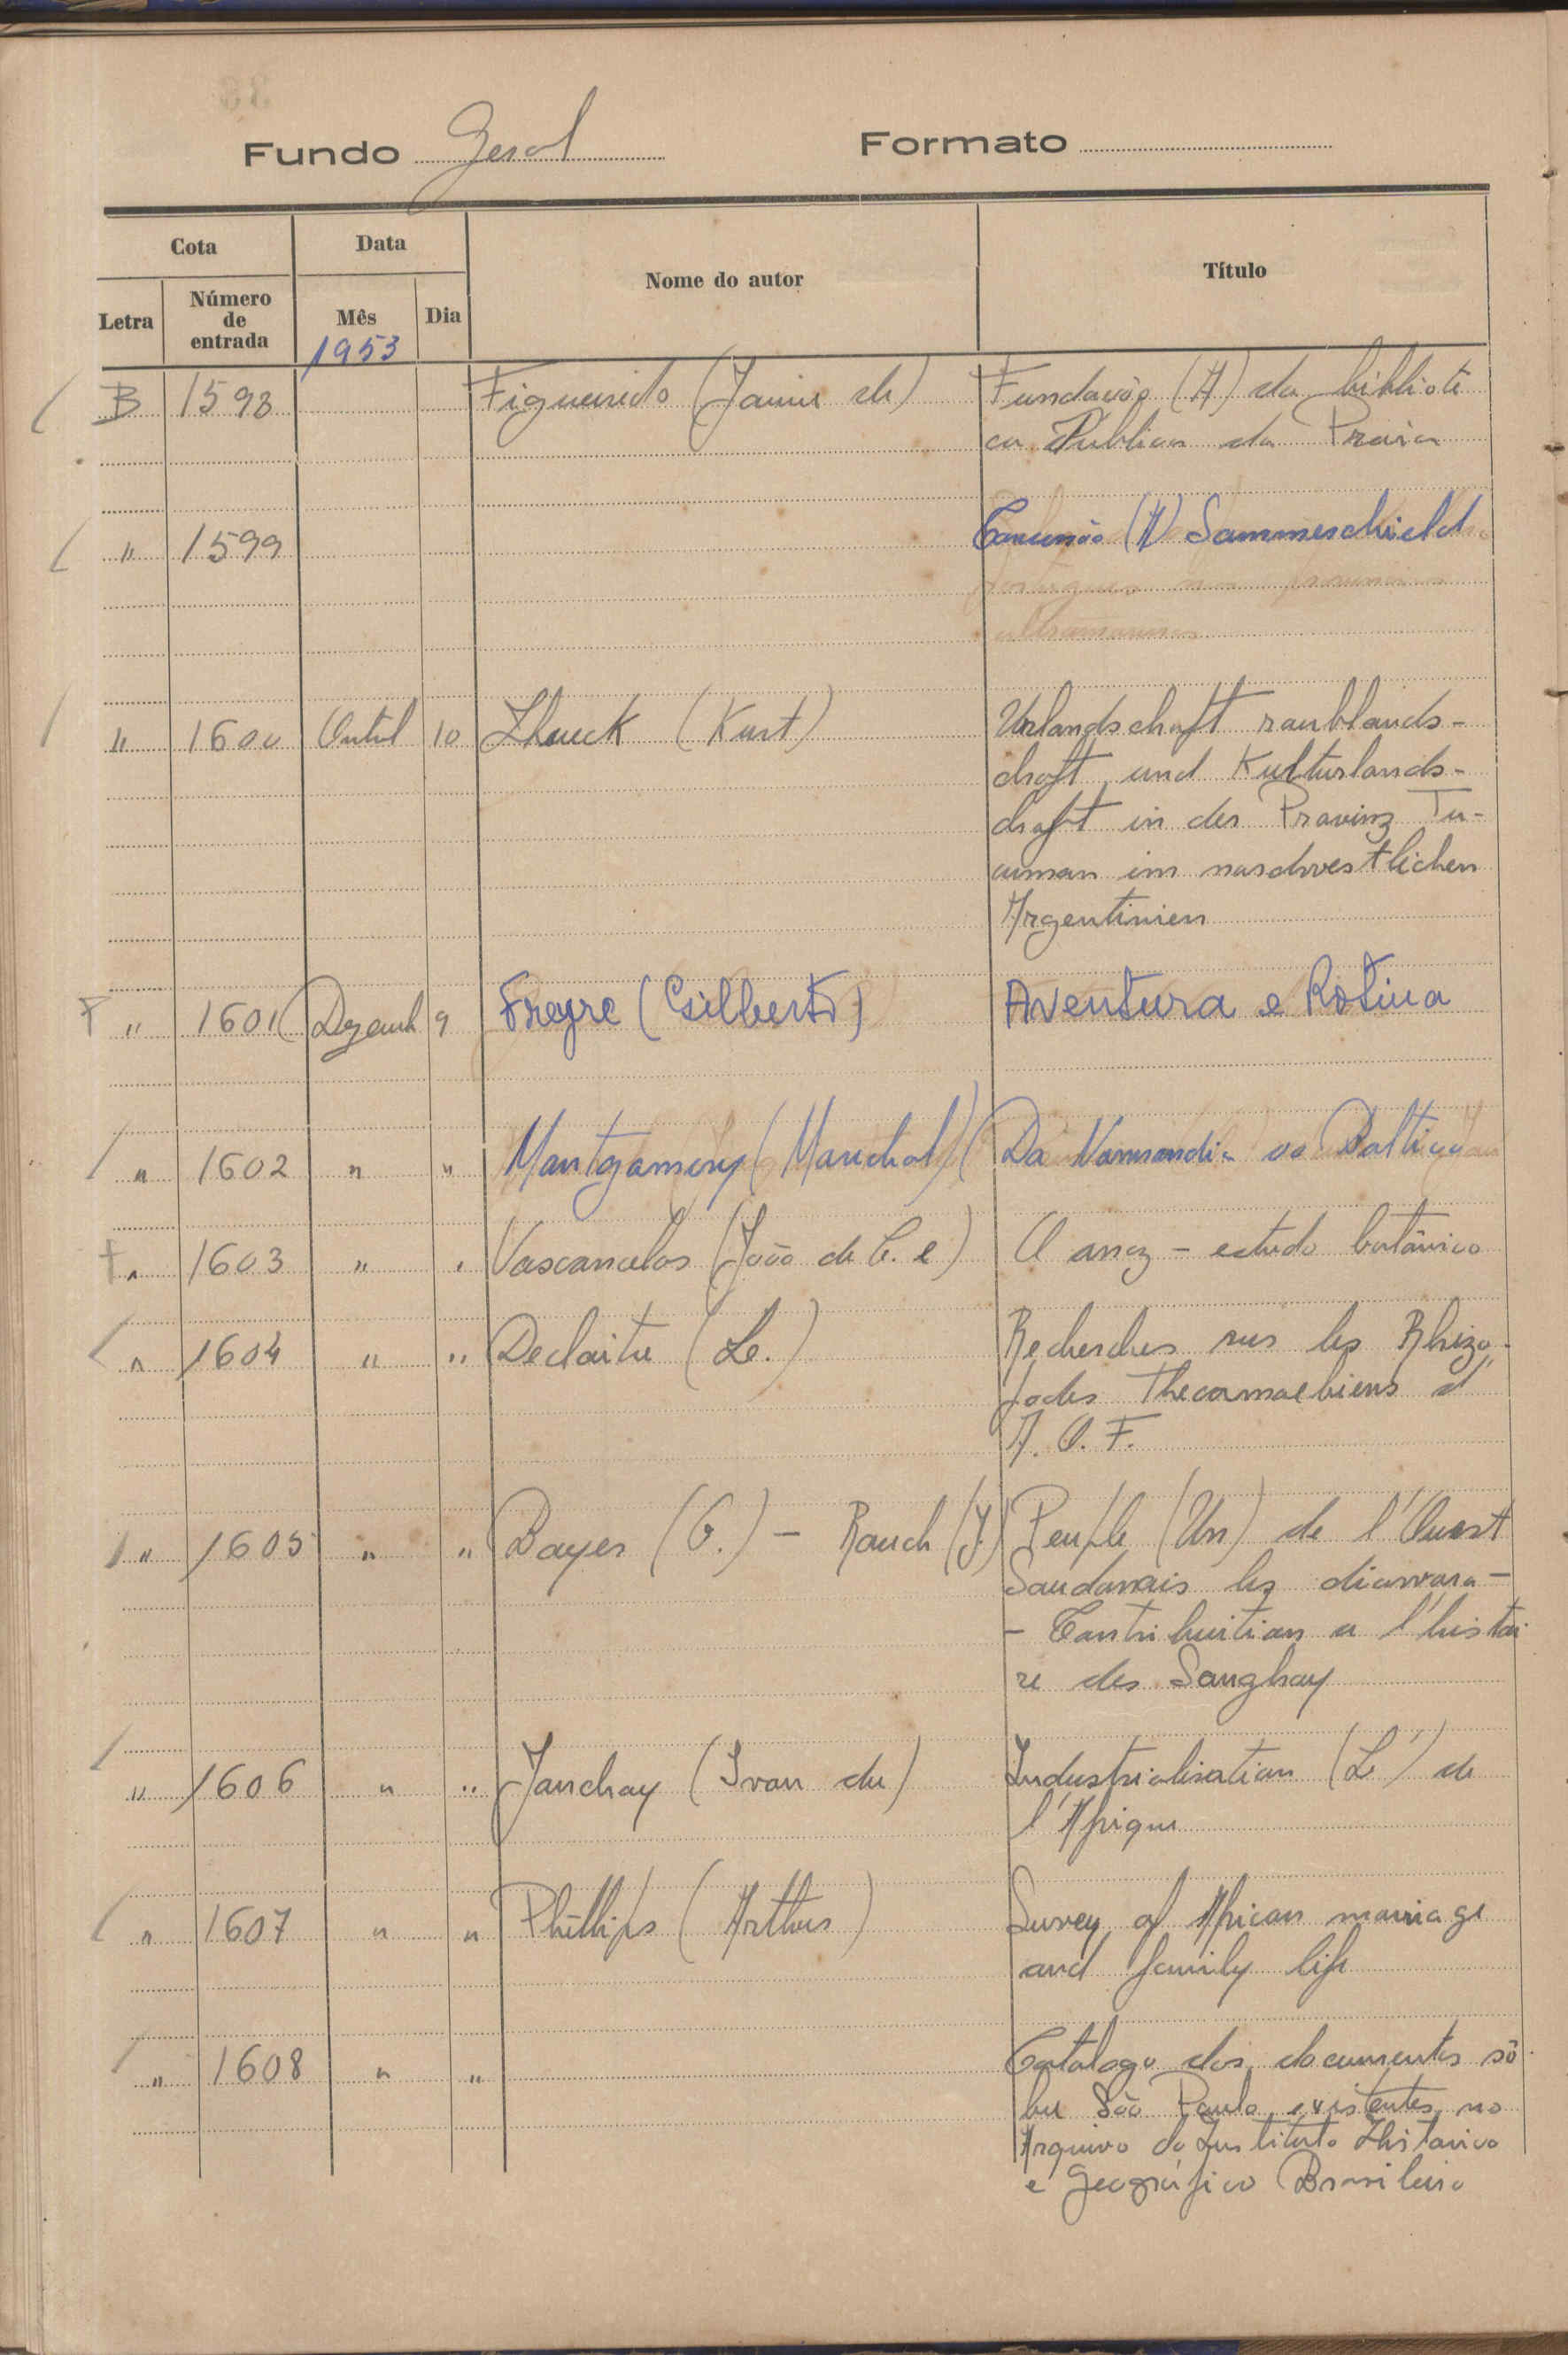 Fundo Geral Formato
Cota Data Nome do autor Título
Letra Número de entrada Mês Dia
1953
B 1598 Figueiredo (Jaime de) Fundação (A) da bibliote
ca Publica da Praia
" 1599 (A) Sommerschield
ultramarinas
" 1600 Outub 10 (Kurt) Urlandschaft raublands-
chaft und Kulturlands-
chaft in der Provinz Tu-
cuman im nordwestlichen
Argentinien
" 1601 Dezemb 9 Freyre (Gilberto) Aventura e Rotina
" 1602 " " Montgomery (Marechal) Da Normandia ao Baltico
" 1603 " " Vasconcelos (João de C. e) O arroz - estudo botânico
" 1604 " " Decloitre (L.) Recherches sur les Rhizo-
podes Thecamoebiens d'
A. O. F.
" 1605 " " Boyer (G.) - Rouch (J.) Peuple (Un) de l'Ouest
Soudanais les diawara -
- Contribuition a l'histoi
re des Songhay
" 1606 " " Jonchay (Ivan du) Industrialisation (L') de
l'Afrique
" 1607 " " Phillips (Arthur) Survey of African marriage
and family life
" 1608 " " Catalogo dos documentos sô
bre São Paulo existentes no
Arquivo do Instituto Historico
e Geográfico Brasileiro